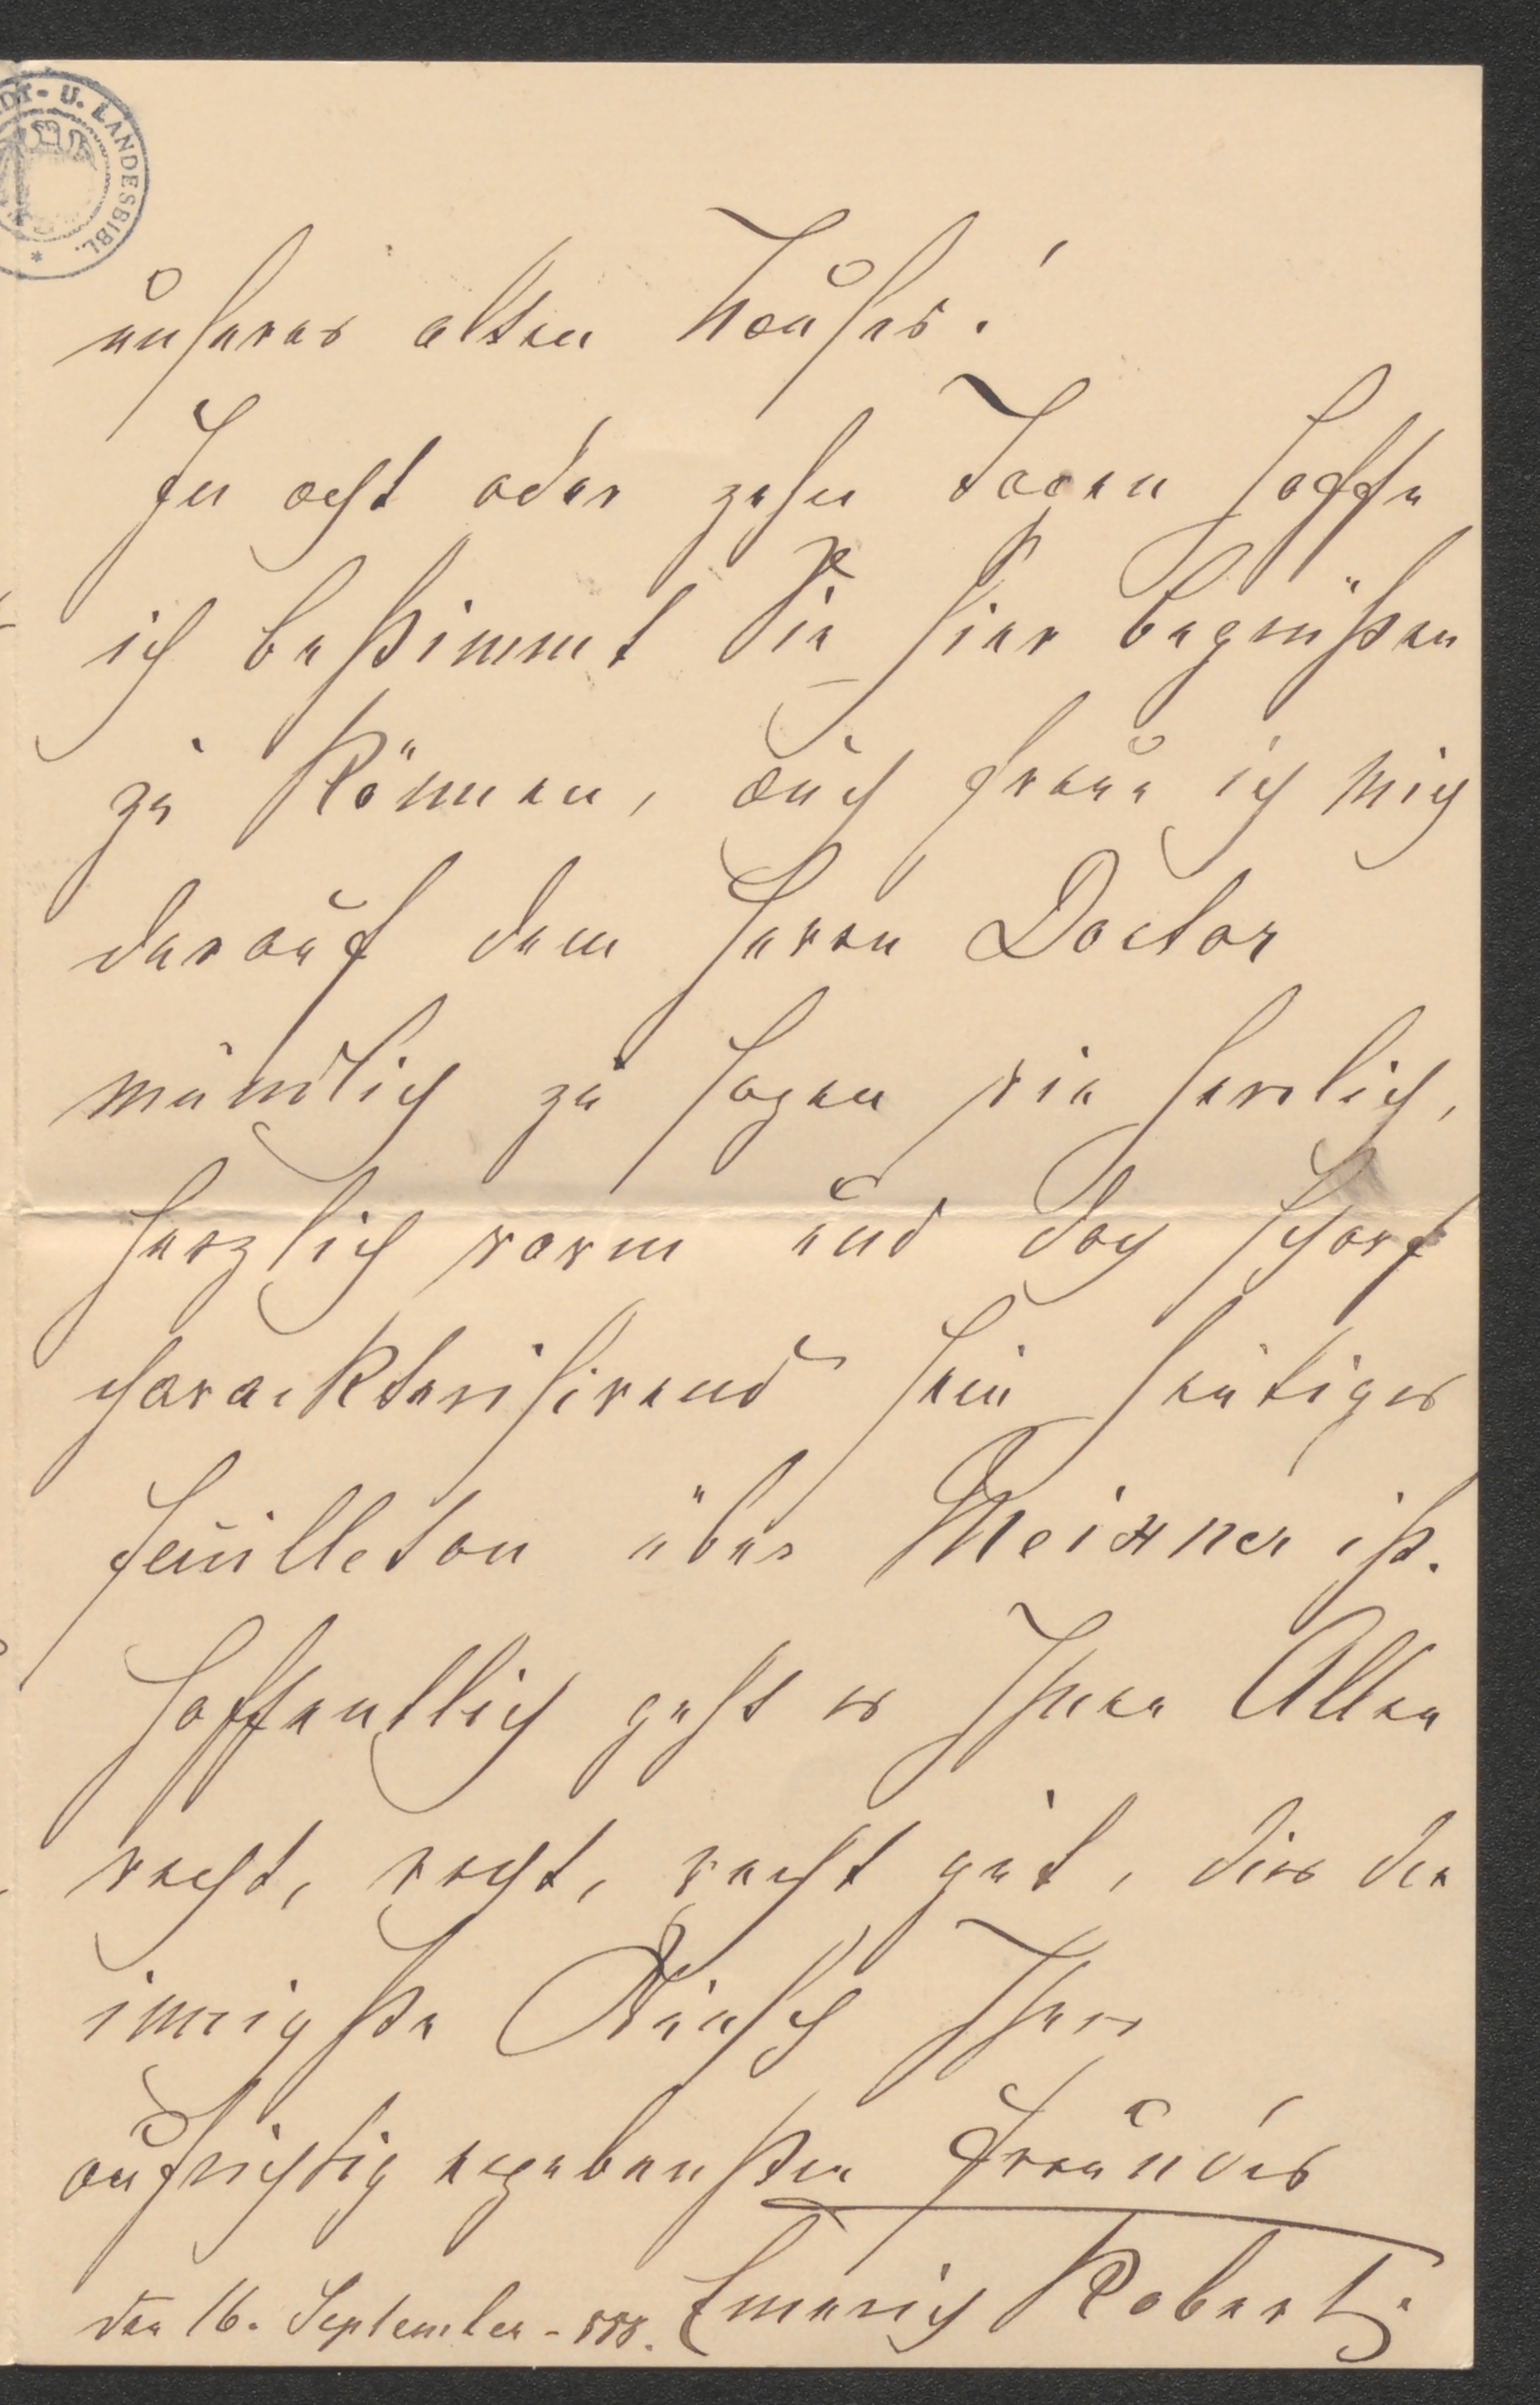 DT- U. LANDESBIBL. *
unseres alten Hauses!
In acht oder zehn Tagen hoffe
ich bestimmt Sie hier begrüßen
zu können, auch freue ich mich
darauf dem Herrn Doctor
mündlich zu sagen wie herrlich,
herzlich warm und doch scharf
charackterisirend sein heutiges
Feuilleton über Meixner ist.
Hoffentlich geht es Ihnen Allen
recht, recht, recht gut, dies der
innigste Wunsch Ihres
aufrichtig ergebensten Freundes
den 16. September - 888. Emerich Robert.